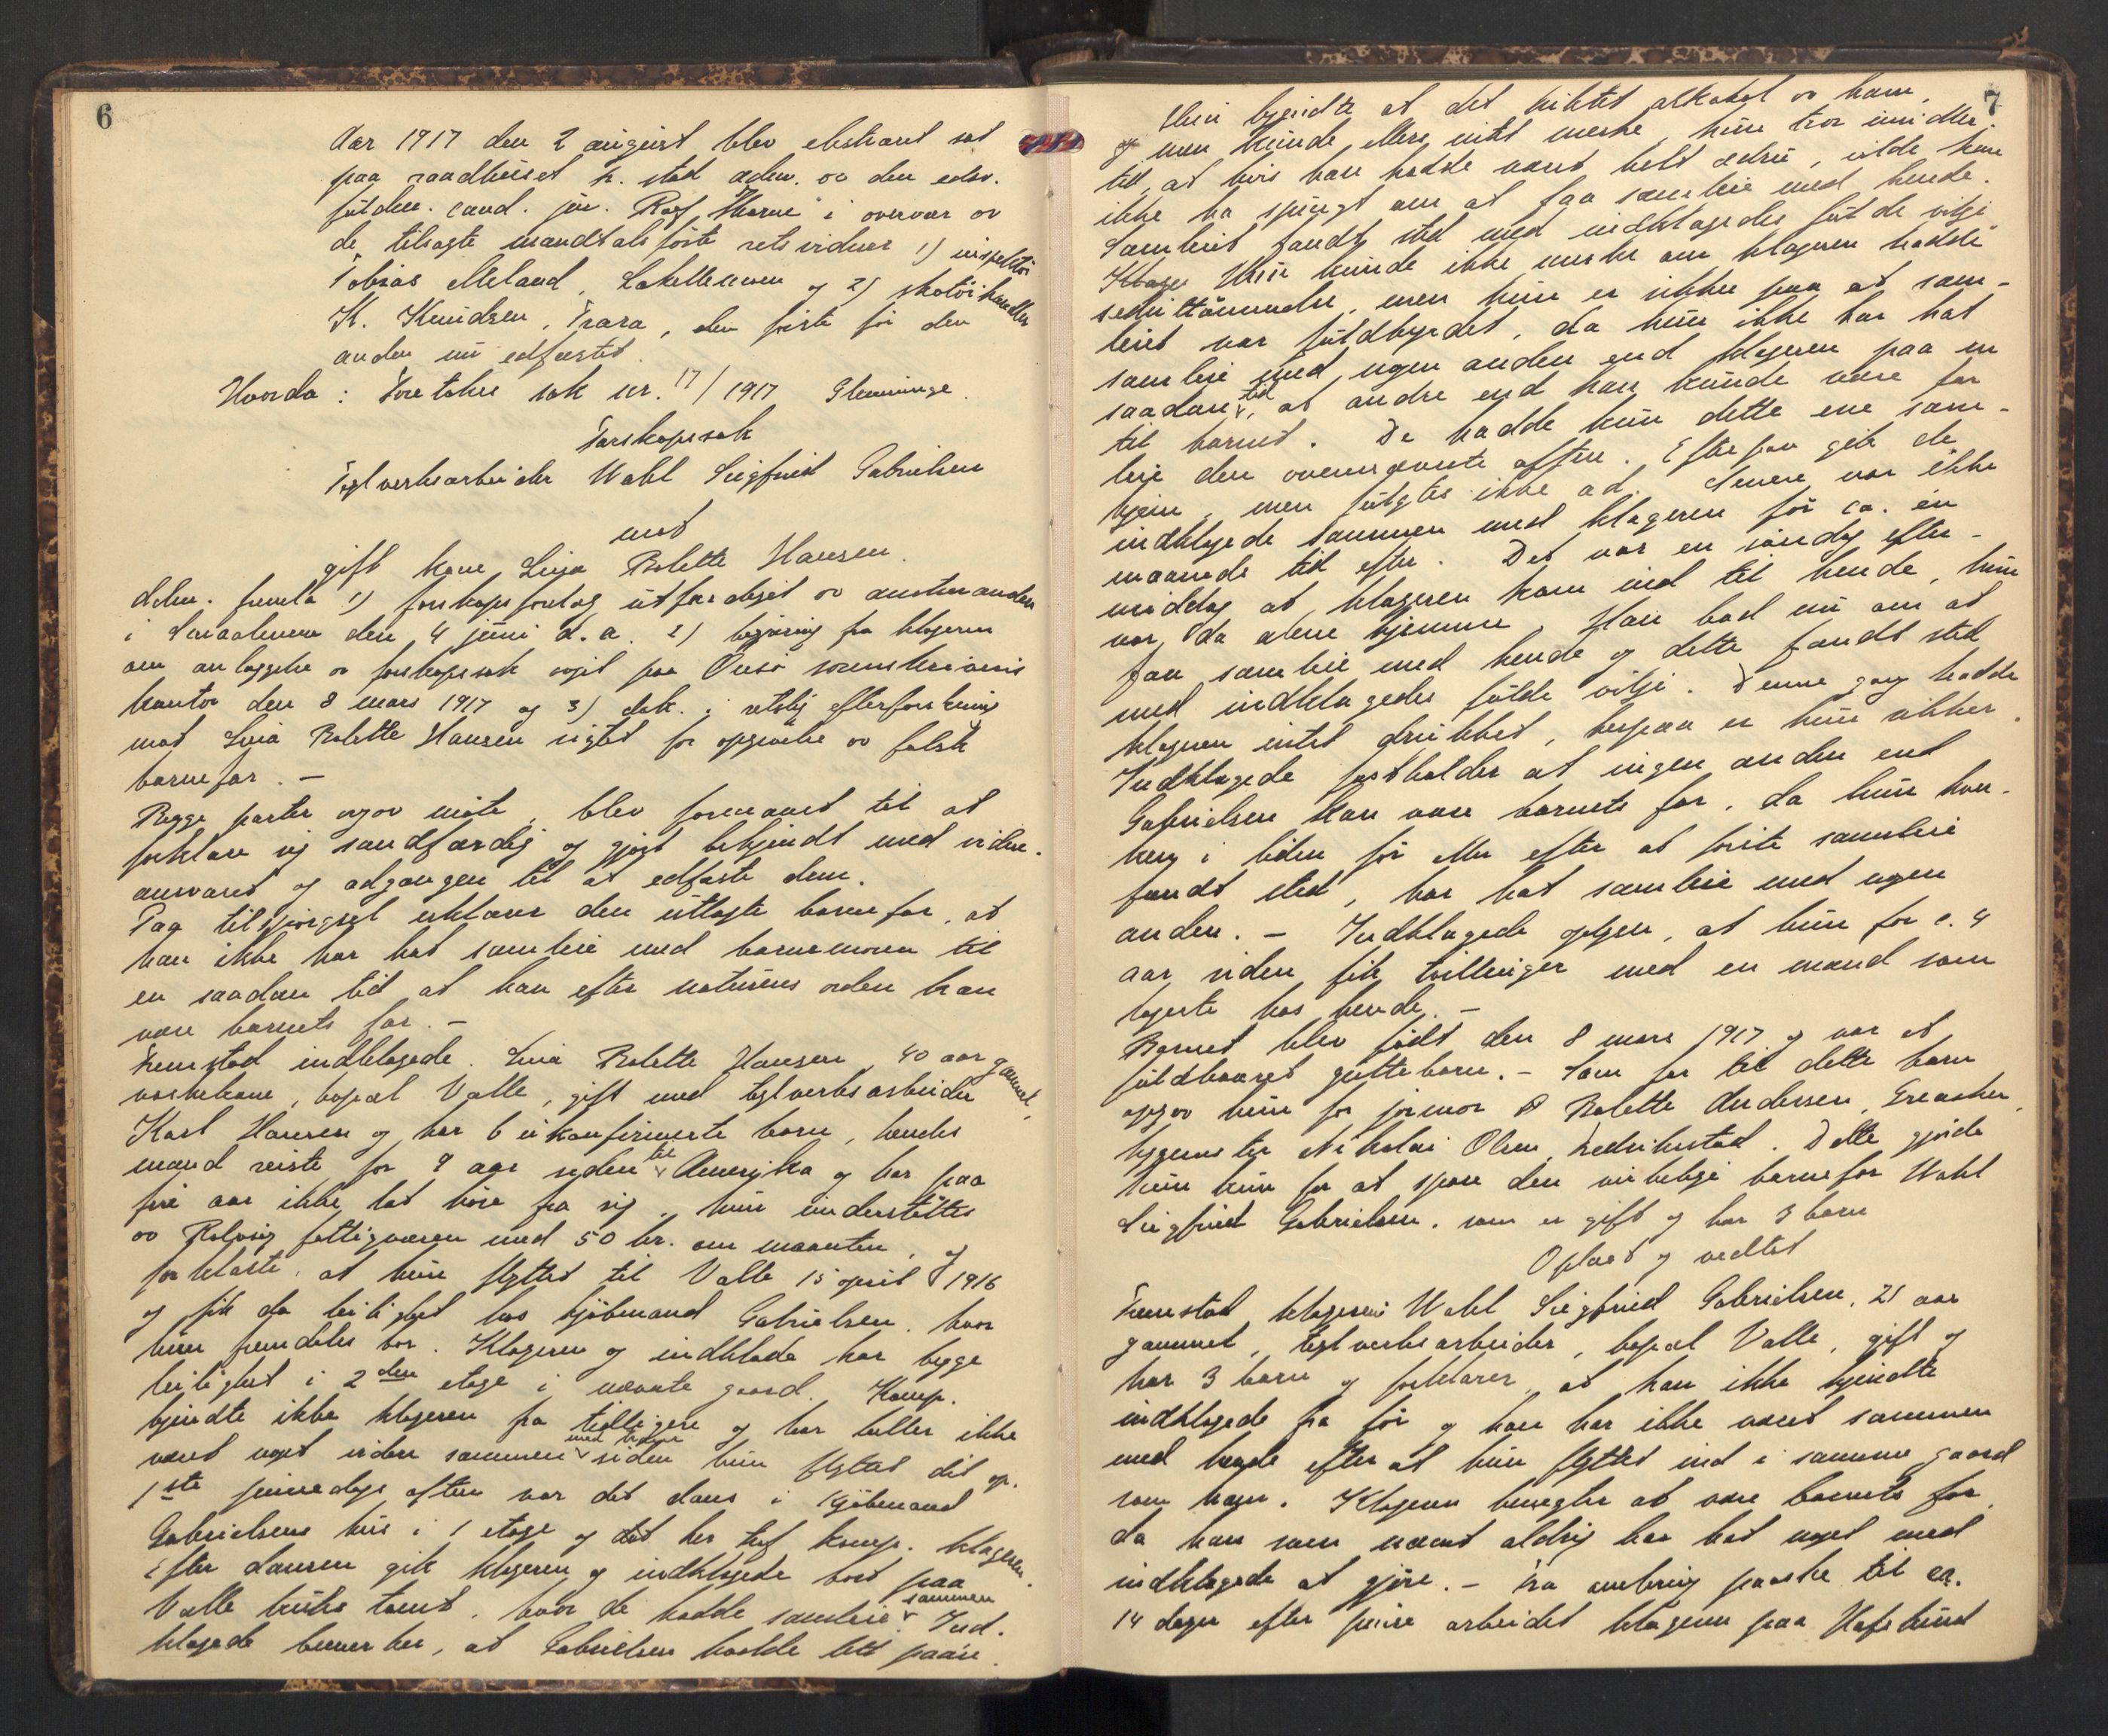 6
Aar 1917 den 2 august blev ekstraret sat
paa raadhuset k. stad adm. av den edsv.
fuldm. cand. jur. Rolf Harm i overvær av
de tilsagte mandtalsførte retsvidner 1) inspektør
Tobias Meland, Lakkleuven og 2) skotøihandler
K. Knudsen, Trara, den første før den
anden nu edfæstet.
Hvorda: Foretokes sak nr. 17/1917 Glemminge.
Farskapssak
Teglverksarbeider Wahl Siegfried Gabrielsen
mot
gift kone Livja Bolette Hansen.
ddm. fremla 1) farskapsforelæg utfærdiget av amtmanden
i Smaalenene den 4 juni d.a. 2) begjæring fra klageren
om anlæggelse av farskapssak avgit paa Onsø sorenskriveris
kontor den 8 mars 1917 og 3) dok. i retslig efterforskning
mot Livia Bolette Hansen sigtet for opgivelse av falsk
barnefar. –
Begge parter avgav møte, blev formanet til at
forklare sig sandfærdig og gjort bekjendt med vidne-
ansvaret og adgangen til at edfæste dem.
Paa tilspørgsel erklærer den utlagte barnefar, at
han ikke har hat samleie med barnemoren til
en saadan tid at han efter naturens orden kan
være barnets far. –
Fremstod indklagede Livia Bolette Hansen, 40 aar gammel,
vaskekone, bopæl Valle, gift med teglverksarbeider
Karl Hansen og har 6 ukonfirmerte barn, hendes
mand reiste for 9 aar siden til Amerika og har paa
fire aar ikke latt høre fra sig, hun understøttes
av Rolvsøy fattigvæsen med 50 kr. om maaneden, og
forklarte, at hun flyttet til Valle 15 april 1916
og fik da leilighet hos kjøbmand Gabrielsen, hvor
hun fremdeles bor. Klageren og indklagde har begge
leilighet i 2den etage i nævnte gaard. Komp.
kjendte ikke klageren fra tidligere og har heller ikke
været noget videre sammen med ham siden hun flyttet dit op.
1ste pinsedags aften var det dans i kjøbmand
Gabrielsens hus i 1 etage og det her traf komp. klageren.
Efter dansen gik klageren og indklagede bort paa
Valle bruks tomt, hvor de hadde samleie sammen. Ind-
klagede bemerker, at Gabrielsen hadde litt paa sig.
7
Hun kjendte at det luktet alkohol av ham,
og men kunde ellers intet merke, hun tror imidler-
tid, at hvis han hadde været helt ædru, vilde han
ikke ha spurgt om at faa samleie med hende.
Samleiet fandt sted med indklagedes fulde vilje
Klager Hun kunde ikke merke om klageren hadde
sedutømmelse, men hun er sikker paa at sam-
leiet var fuldbyrdet, da hun ikke har hat
samleie med nogen anden end klageren paa en
saadan tid, at andre end han kunde være far
til barnet. De hadde kun dette ene sam-
leie den ovennævnte aften. Efterpaa gik de
hjem, men fulgtes ikke ad. Senere var ikke
indklagede sammen med klageren før ca. én
maaneds tid efter. Det var en søndag efter-
middag at klageren kom ind til hende, hun
var da alene hjemme. Han bad nu om at
faa samleie med hende og dette fandt sted
med indklagedes fulde vilje. Denne gang hadde
klageren intet drukket, herpaa er hun sikker.
Indklagede fastholder at ingen anden end
Gabrielsen kan være barnets far, da hun hver-
ken i tiden før eller efter at første samleie
fandt sted, har hat samleie med nogen
anden. – Indklagede oplyser, at hun for c. 4
aar siden fik tvillinger med en mand som
logerte hos hende. –
Barnet blev født den 8 mars 1917 og var et
fuldbaaret guttebarn. – Som far til dette barn
opgav hun for jormor B Bolette Andersen, Greaaker,
bygmester Nikolai Olsen, Fredrikstad. Dette gjorde
hun kun for at spare den virkelige barnefar Wahl
Siegfried Gabrielsen, som er gift og har 3 barn
Oplæst og vedtat
Fremstod klageren Wahl Siegfried Gabrielsen, 21 aar
gammel, teglverksarbeider, bopæl Valle, gift og
har 3 barn og forklarer at han ikke kjendte
indklagede fra før og han har ikke været sammen
med hende efter at hun flyttet ind i samme gaard
som ham. Klageren benegter at være barnets far,
da han som nævnt aldrig har hat noget med
indklagede at gjøre. – Fra omkring paaske til ca.
14 dager efter pinse arbeidet klageren paa Hafslund